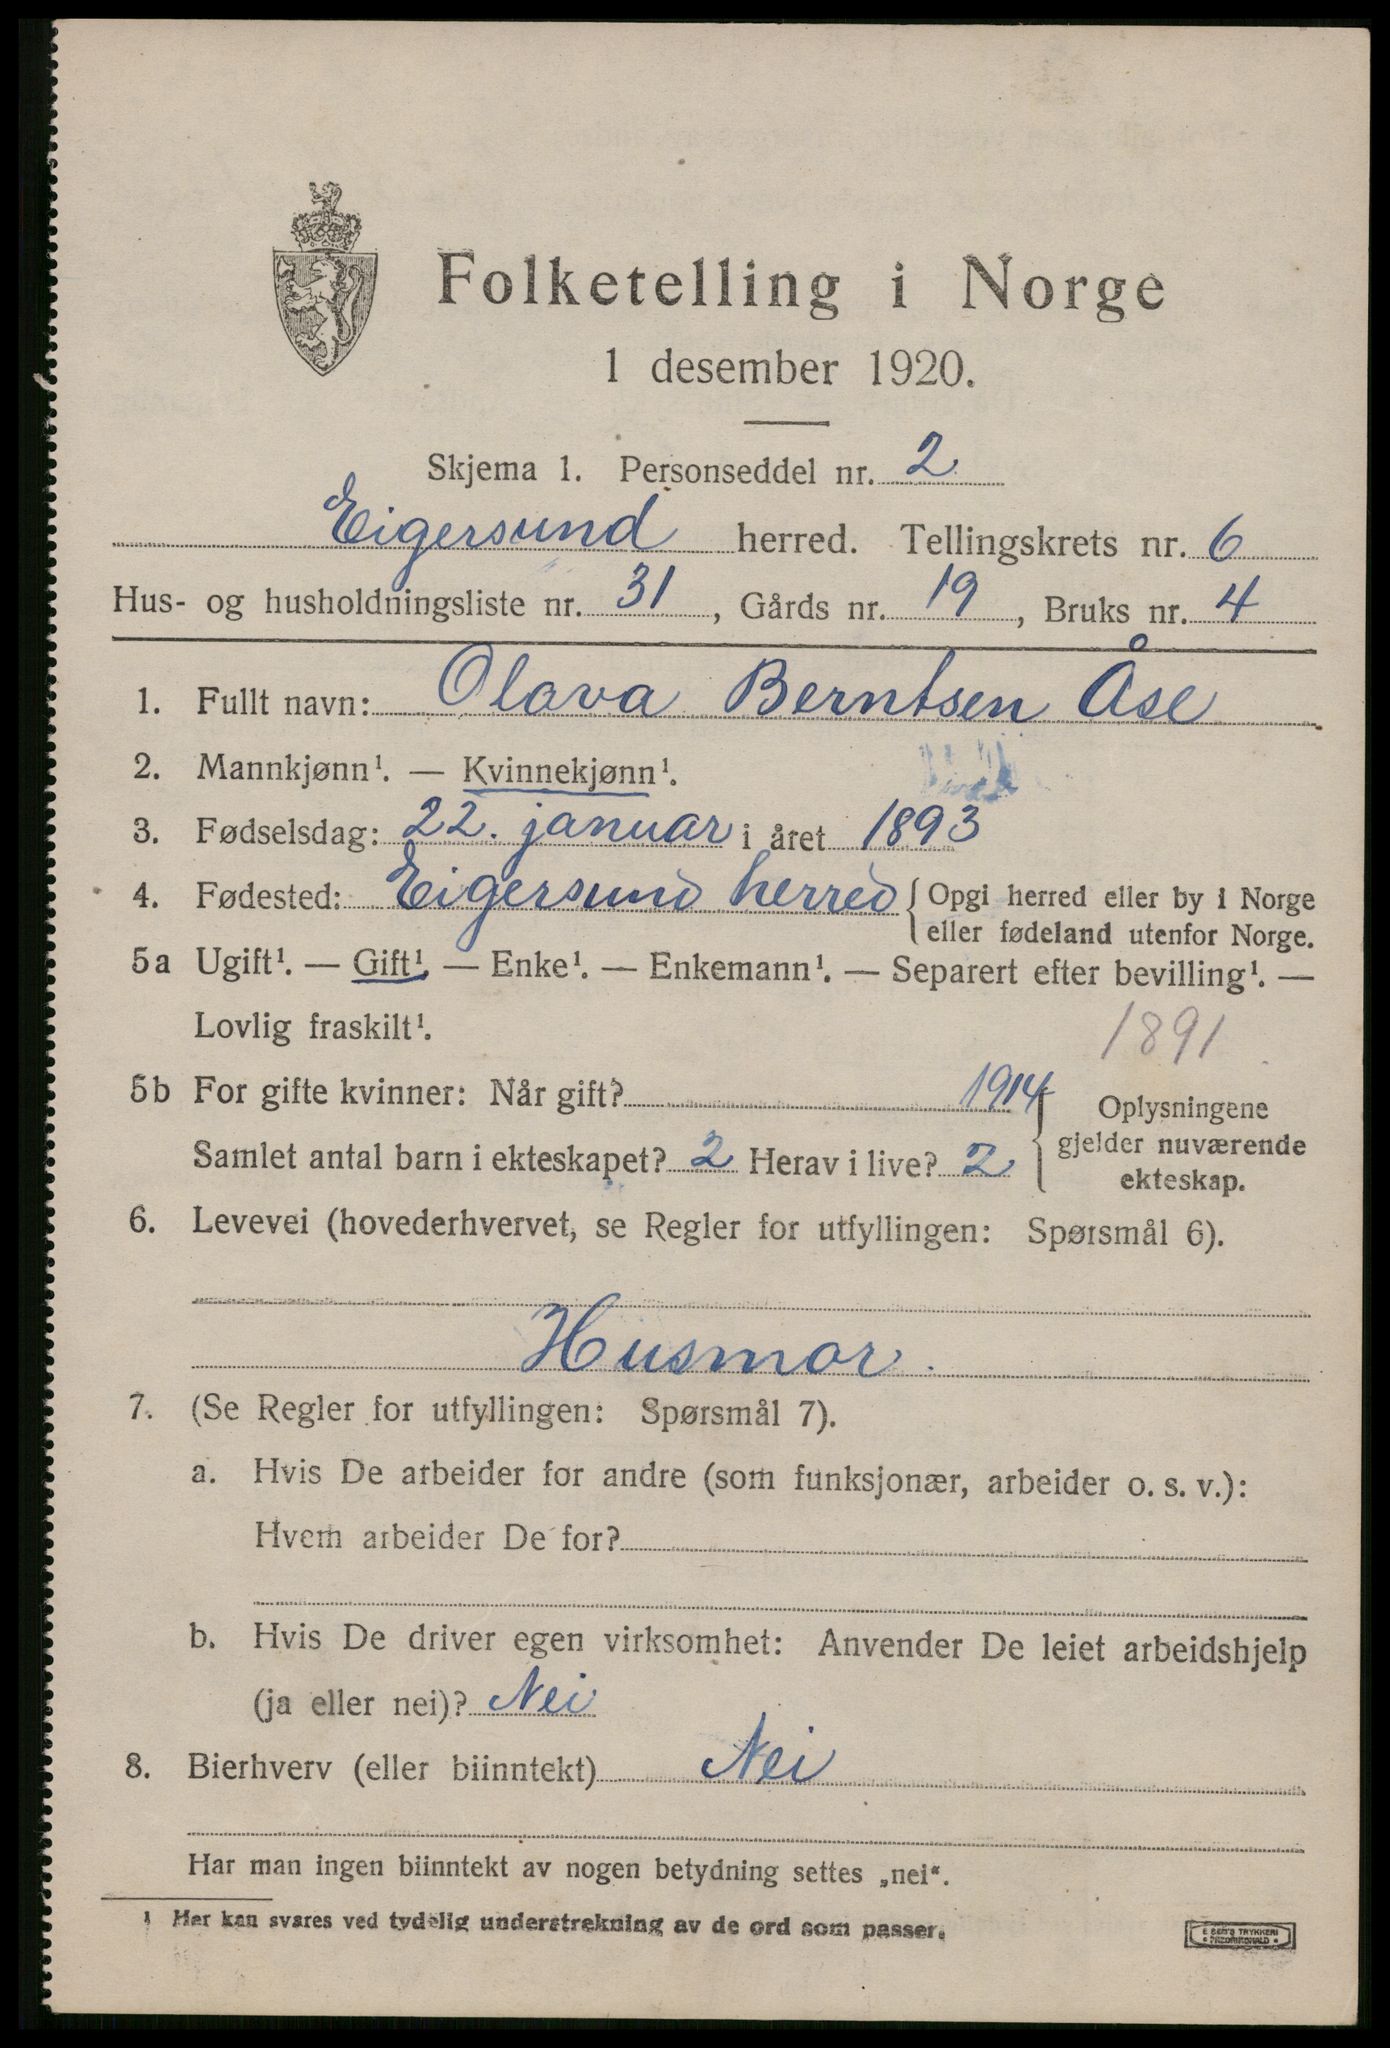 Folketelling i Norge
1 desember 1920.
Skjema 1. Personseddel nr. 2
Eigersund herred. Tellingskrets nr. 6
Hus- og husholdningsliste nr. 31, Gårds nr. 19, Bruks nr. 4
1. Fullt navn: Olava Berntsen Åse
2. Mannkjønn¹. — Kvinnekjønn¹.
3. Fødselsdag: 22. januar i året 1893
4. Fødested: Eigersund herred { Opgi herred eller by i Norge
eller fødeland utenfor Norge.
5a Ugift¹. — Gift¹ — Enke¹. — Enkemann¹. — Separert efter bevilling¹. —
Lovlig fraskilt¹.
1891
5b For gifte kvinner: Når gift? 1914
Samlet antal barn i ekteskapet? 2 Herav i live? 2
{ Oplysningene
gjelder nuværende
ekteskap.
6. Levevei (hovederhvervet, se Regler for utfyllingen: Spørsmål 6).
Husmor.
7. (Se Regler for utfyllingen: Spørsmål 7).
a. Hvis De arbeider for andre (som funksjonær, arbeider o. s. v.):
Hvem arbeider De for?
b. Hvis De driver egen virksomhet: Anvender De leiet arbeidshjelp
(ja eller nei)? Nei
8. Bierhverv (eller biinntekt) Nei
Har man ingen biinntekt av nogen betydning settes „nei“.
¹ Her kan svares ved tydelig understrekning av de ord som passer.
TRYKKERI